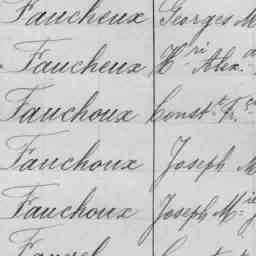 Faucheux Georges M
Faucheux H.ri Alex.
Fauchoux Const.t Fr.
Fauchoux Joseph M
Fauchoux Joseph M.ie